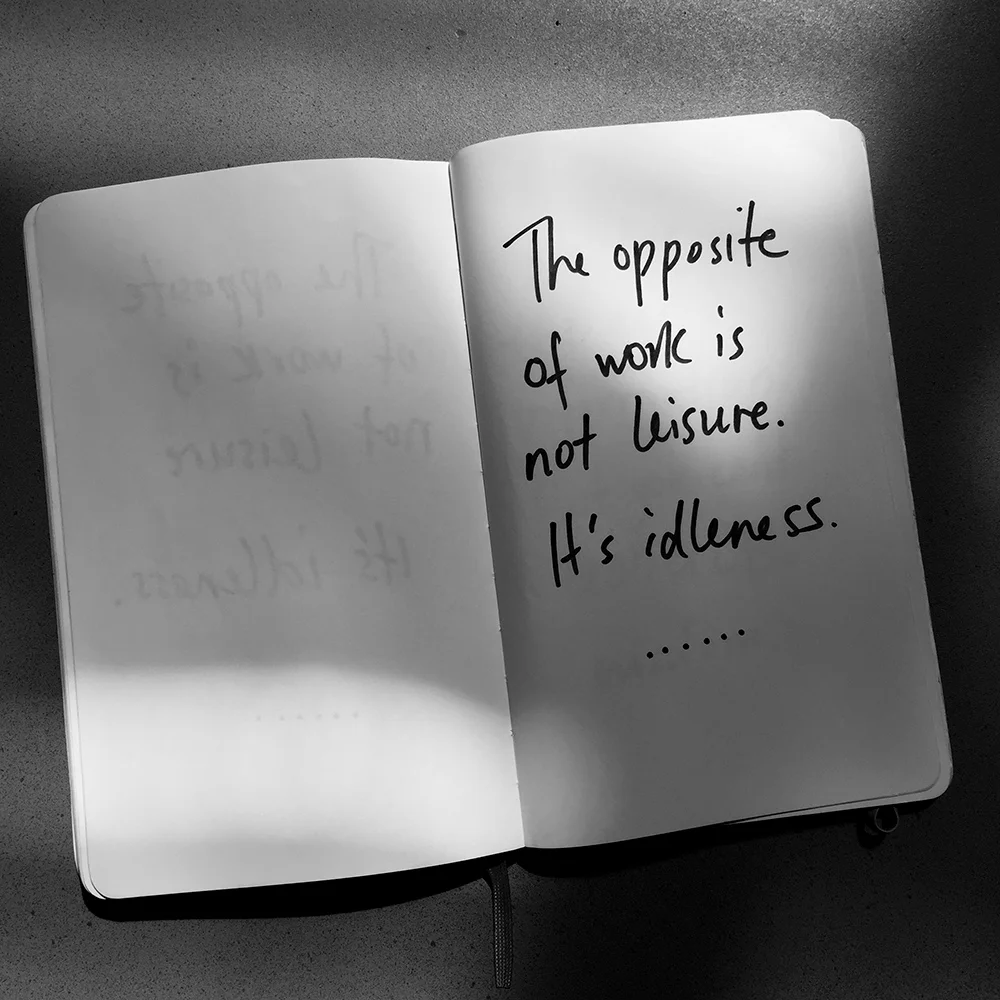 The opposite
of work is
not leisure.
It's idleness.
......